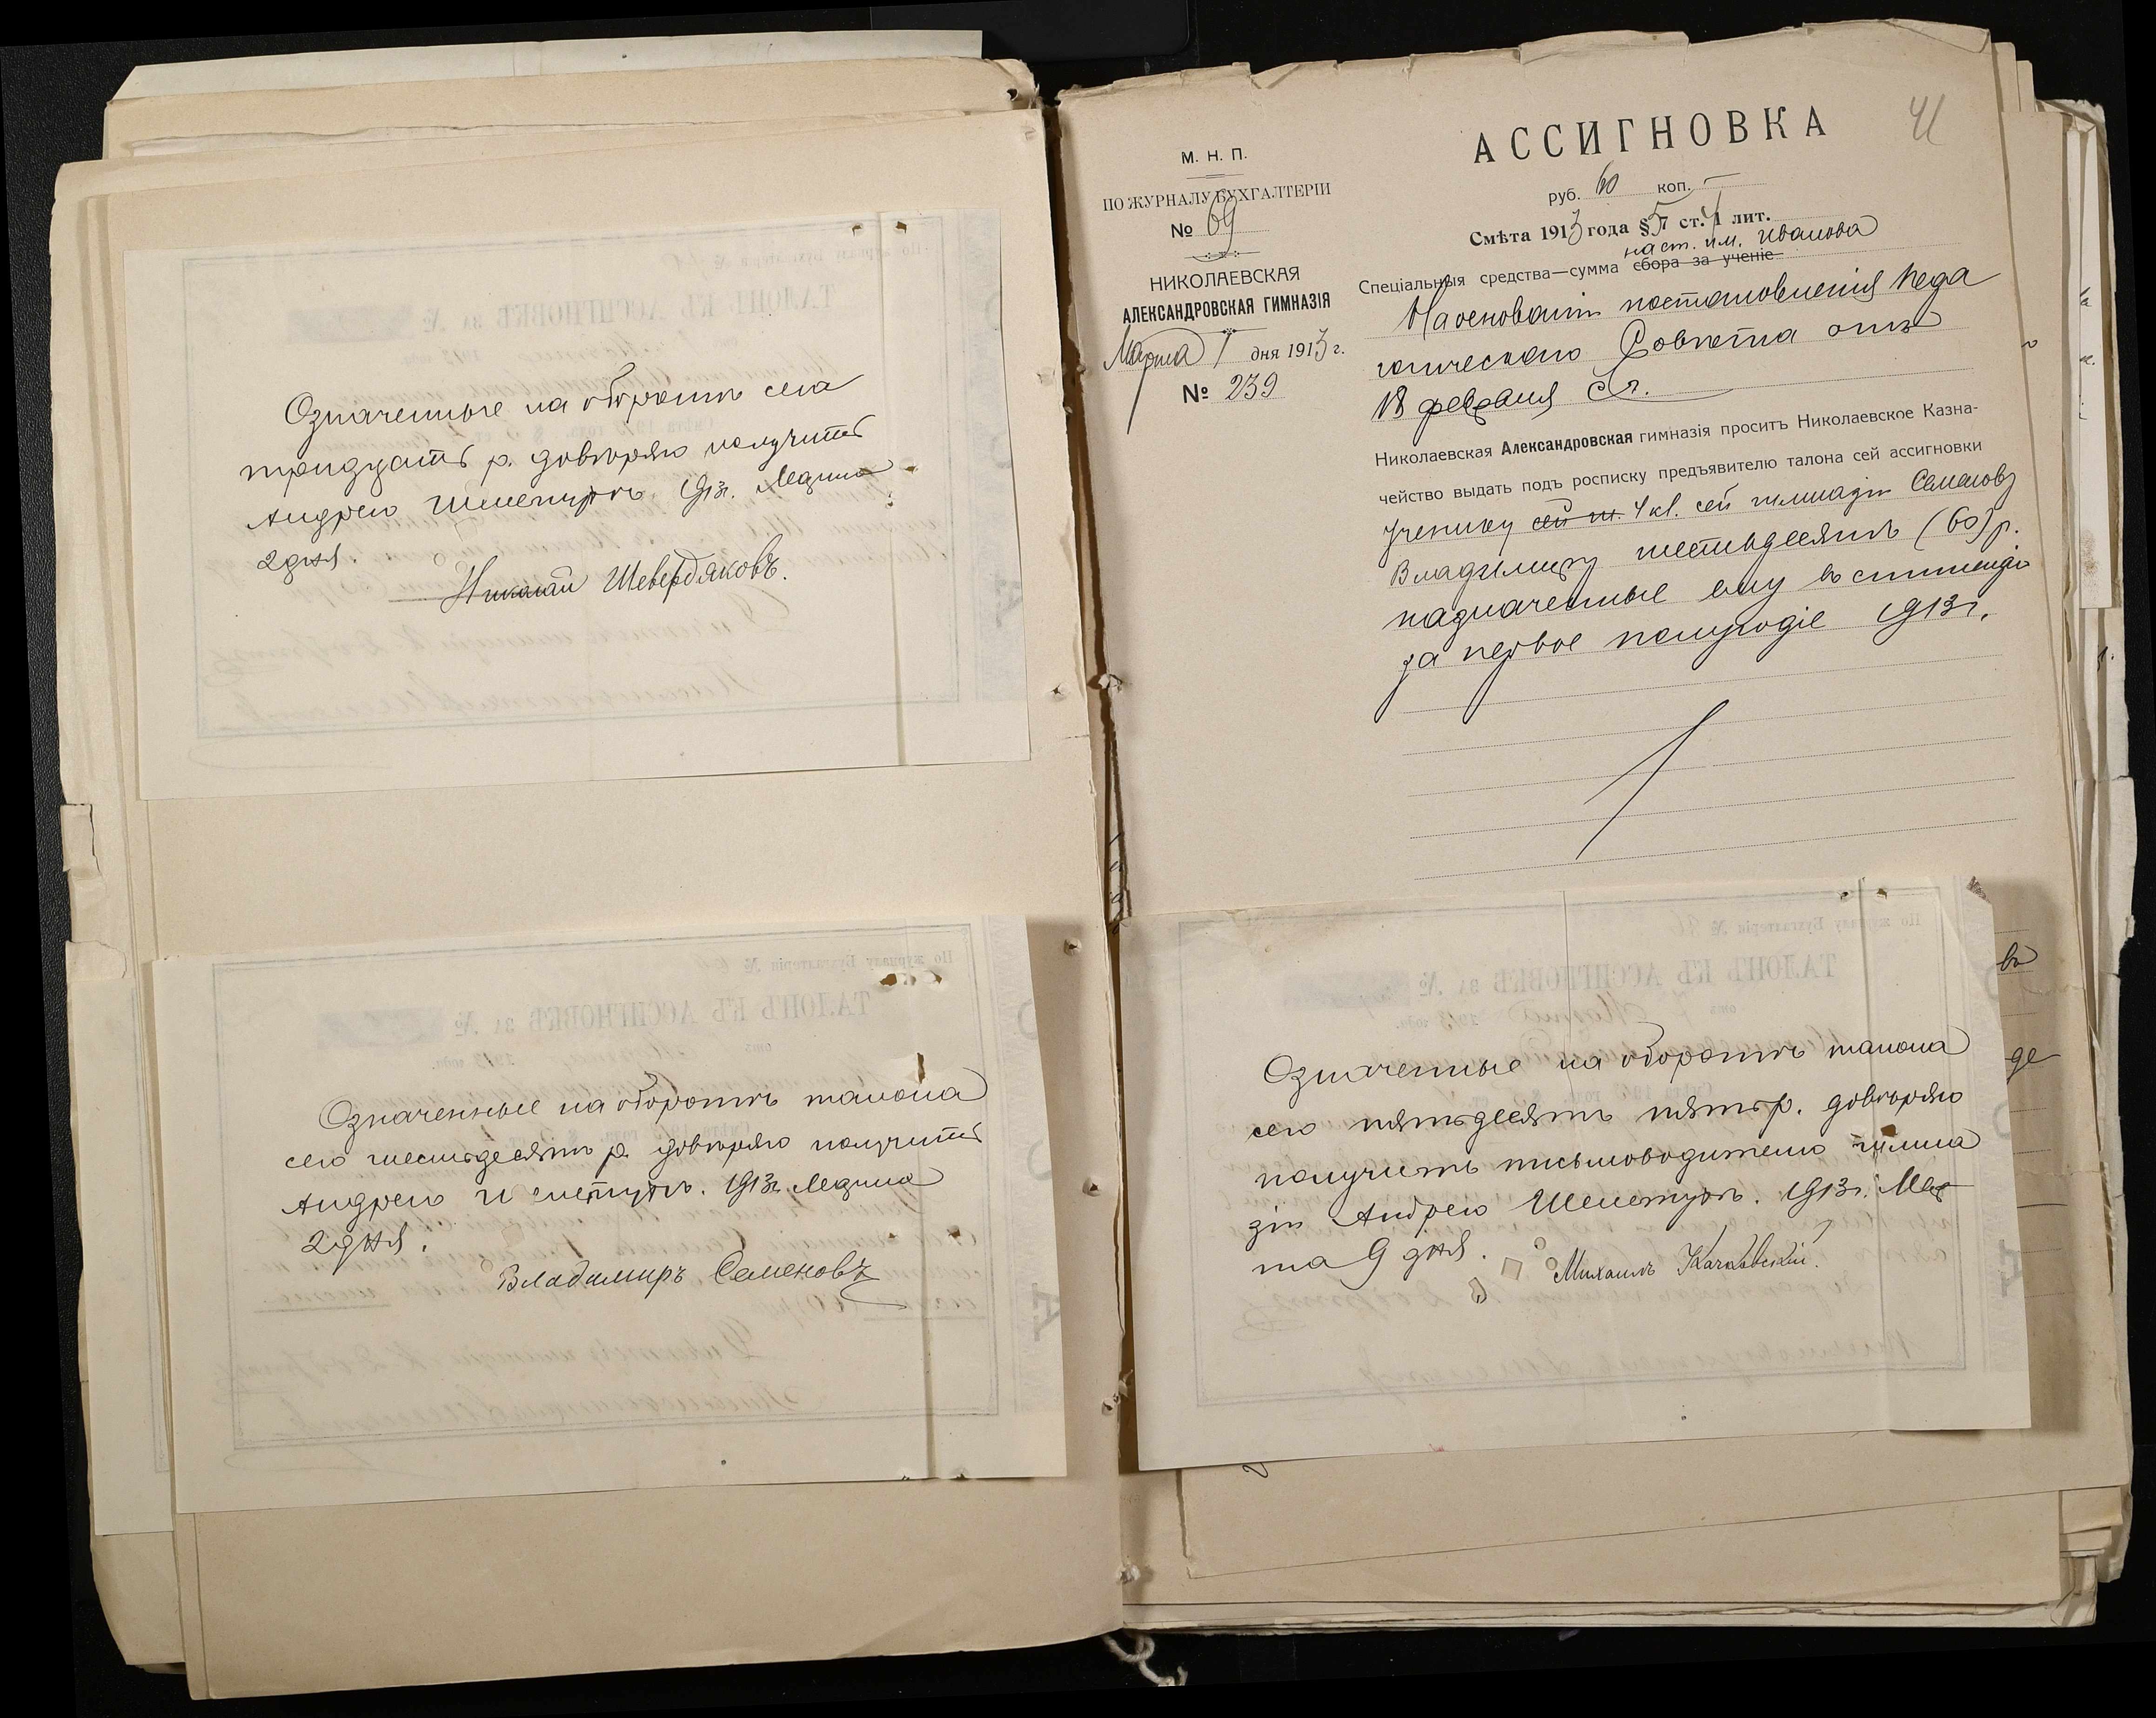 Означенные на оборотѣ сего
тридцать р. довѣряю получить
Андрею Шелепуръ. 1913г. Марта
2 дня.
Николай Шевердяковъ.
Означенные на оборотѣ талона
сего шестьдесятъ р. довѣряю получить
Андрею 1913г. Марта
2 дня.
Владимиръ Семеновъ
41
М. Н. П.
ПО ЖУРНАЛУ БУХГАЛТЕРІИ
№ 69
НИКОЛАЕВСКАЯ
АЛЕКСАНДРОВСКАЯ ГИМНАЗІЯ
Марта 1 дня 1913 г.
№ 239
АССИГНОВКА
руб. 60 коп. —
Смѣта 1913 года § 5 ст. 4 лит.
на ст. им. Иванова
Спеціальныя средства—сумма сбора за ученіе
На основаніи постановленія Педа
гогическаго Совѣта отъ
18 февраля с.г.
Николаевская Александровская гимназія проситъ Николаевское Казна-
чейство выдать подъ росписку предъявителю талона сей ассигновки
Ученику сей 4 кл. сей гимназіи Семенову
Владимиру шестьдесятъ (60) р.
назначенные ему въ стипендію
за первое полугодіе 1913г.
Означенные на оборотѣ талона
сего пятьдесятъ пять р. довѣряю
получить письмоводителю гимна
зіи Андрею 1913г. Мар
та 9 дня.
Михаилъ
въ
де